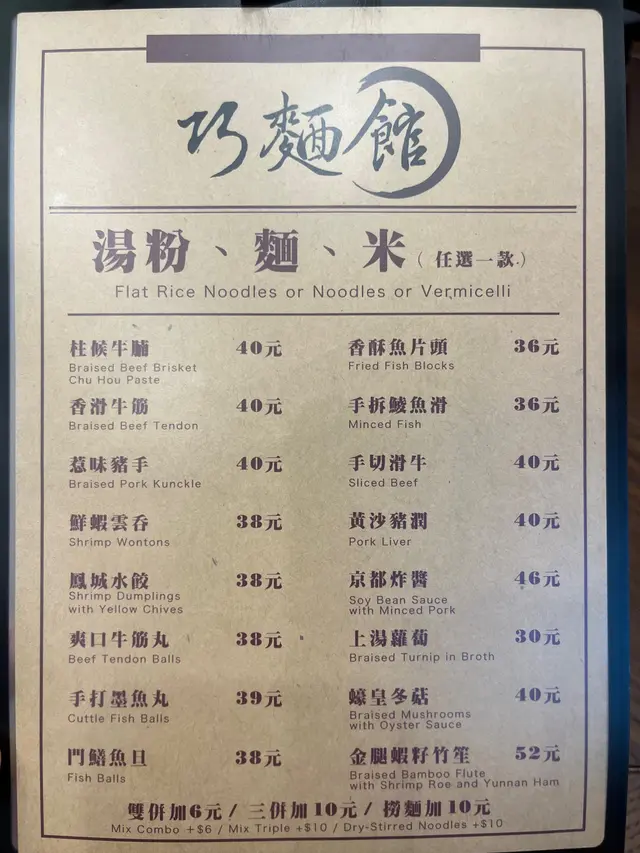 巧麵館
湯粉、麵、米（任選一款.）
Flat Rice Noodles or Noodles or Vermicelli
柱候牛腩 40元
Braised Beef Brisket
Chu Hou Paste
香滑牛筋 40元
Braised Beef Tendon
惹味豬手 40元
Braised Pork Kunckle
鮮蝦雲吞 38元
Shrimp Wontons
鳳城水餃 38元
Shrimp Dumplings
with Yellow Chives
爽口牛筋丸 38元
Beef Tendon Balls
手打墨魚丸 39元
Cuttle Fish Balls
門鱔魚旦 38元
Fish Balls
香酥魚片頭 36元
Fried Fish Blocks
手拆鯪魚滑 36元
Minced Fish
手切滑牛 40元
Sliced Beef
黃沙豬潤 40元
Pork Liver
京都炸醬 46元
Soy Bean Sauce
with Minced Pork
上湯蘿蔔 30元
Braised Turnip in Broth
蠔皇冬菇 40元
Braised Mushrooms
with Oyster Sauce
金腿蝦籽竹笙 52元
Braised Bamboo Flute
with Shrimp Roe and Yunnan Ham
雙併加6元 / 三併加10元 / 撈麵加10元
Mix Combo +$6 / Mix Triple +$10 / Dry-Stirred Noodles +$10